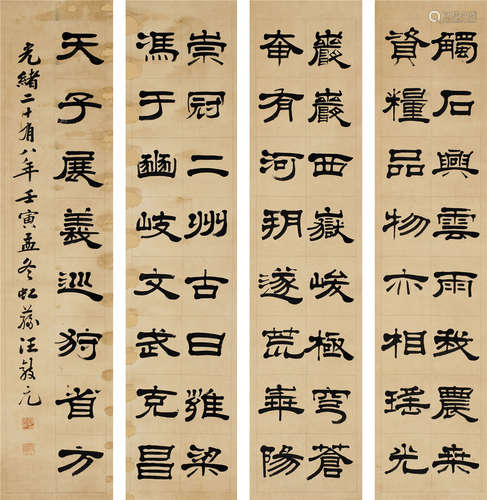 觸石興雲雨我農桒
資糧品物亦相瑤光
巖巖西嶽峻極穹蒼
奄有河朔遂荒華陽
崇冠二州古曰雍梁
馮于豳岐文武克昌
天子展義巡狩省方
光緒二十有八年壬寅孟冬虹藤汪元